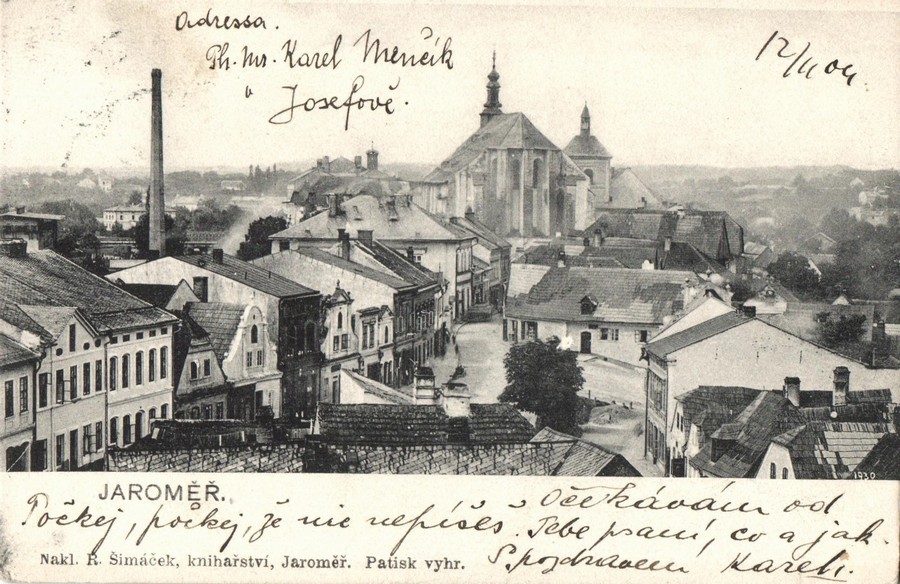 Adressa.
Ph. Mr. Karel Menčík
v Josefově.
12/II 04
1930
JAROMĚŘ.
Počkej, počkej, že nic nepíšeš! Očekávám od
Tebe psaní, co a jak.
S pozdravem Karel.
Nakl. R. Šimáček, knihařství, Jaroměř. Patisk vyhr.